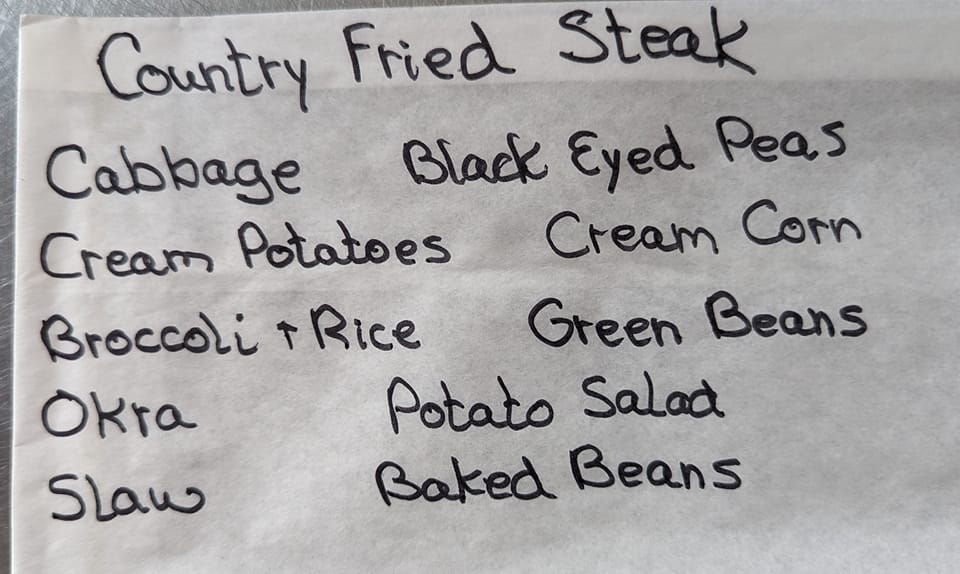 Country Fried Steak
Cabbage Black Eyed Peas
Cream Potatoes Cream Corn
Broccoli + Rice Green Beans
Okra Potato Salad
Slaw Baked Beans